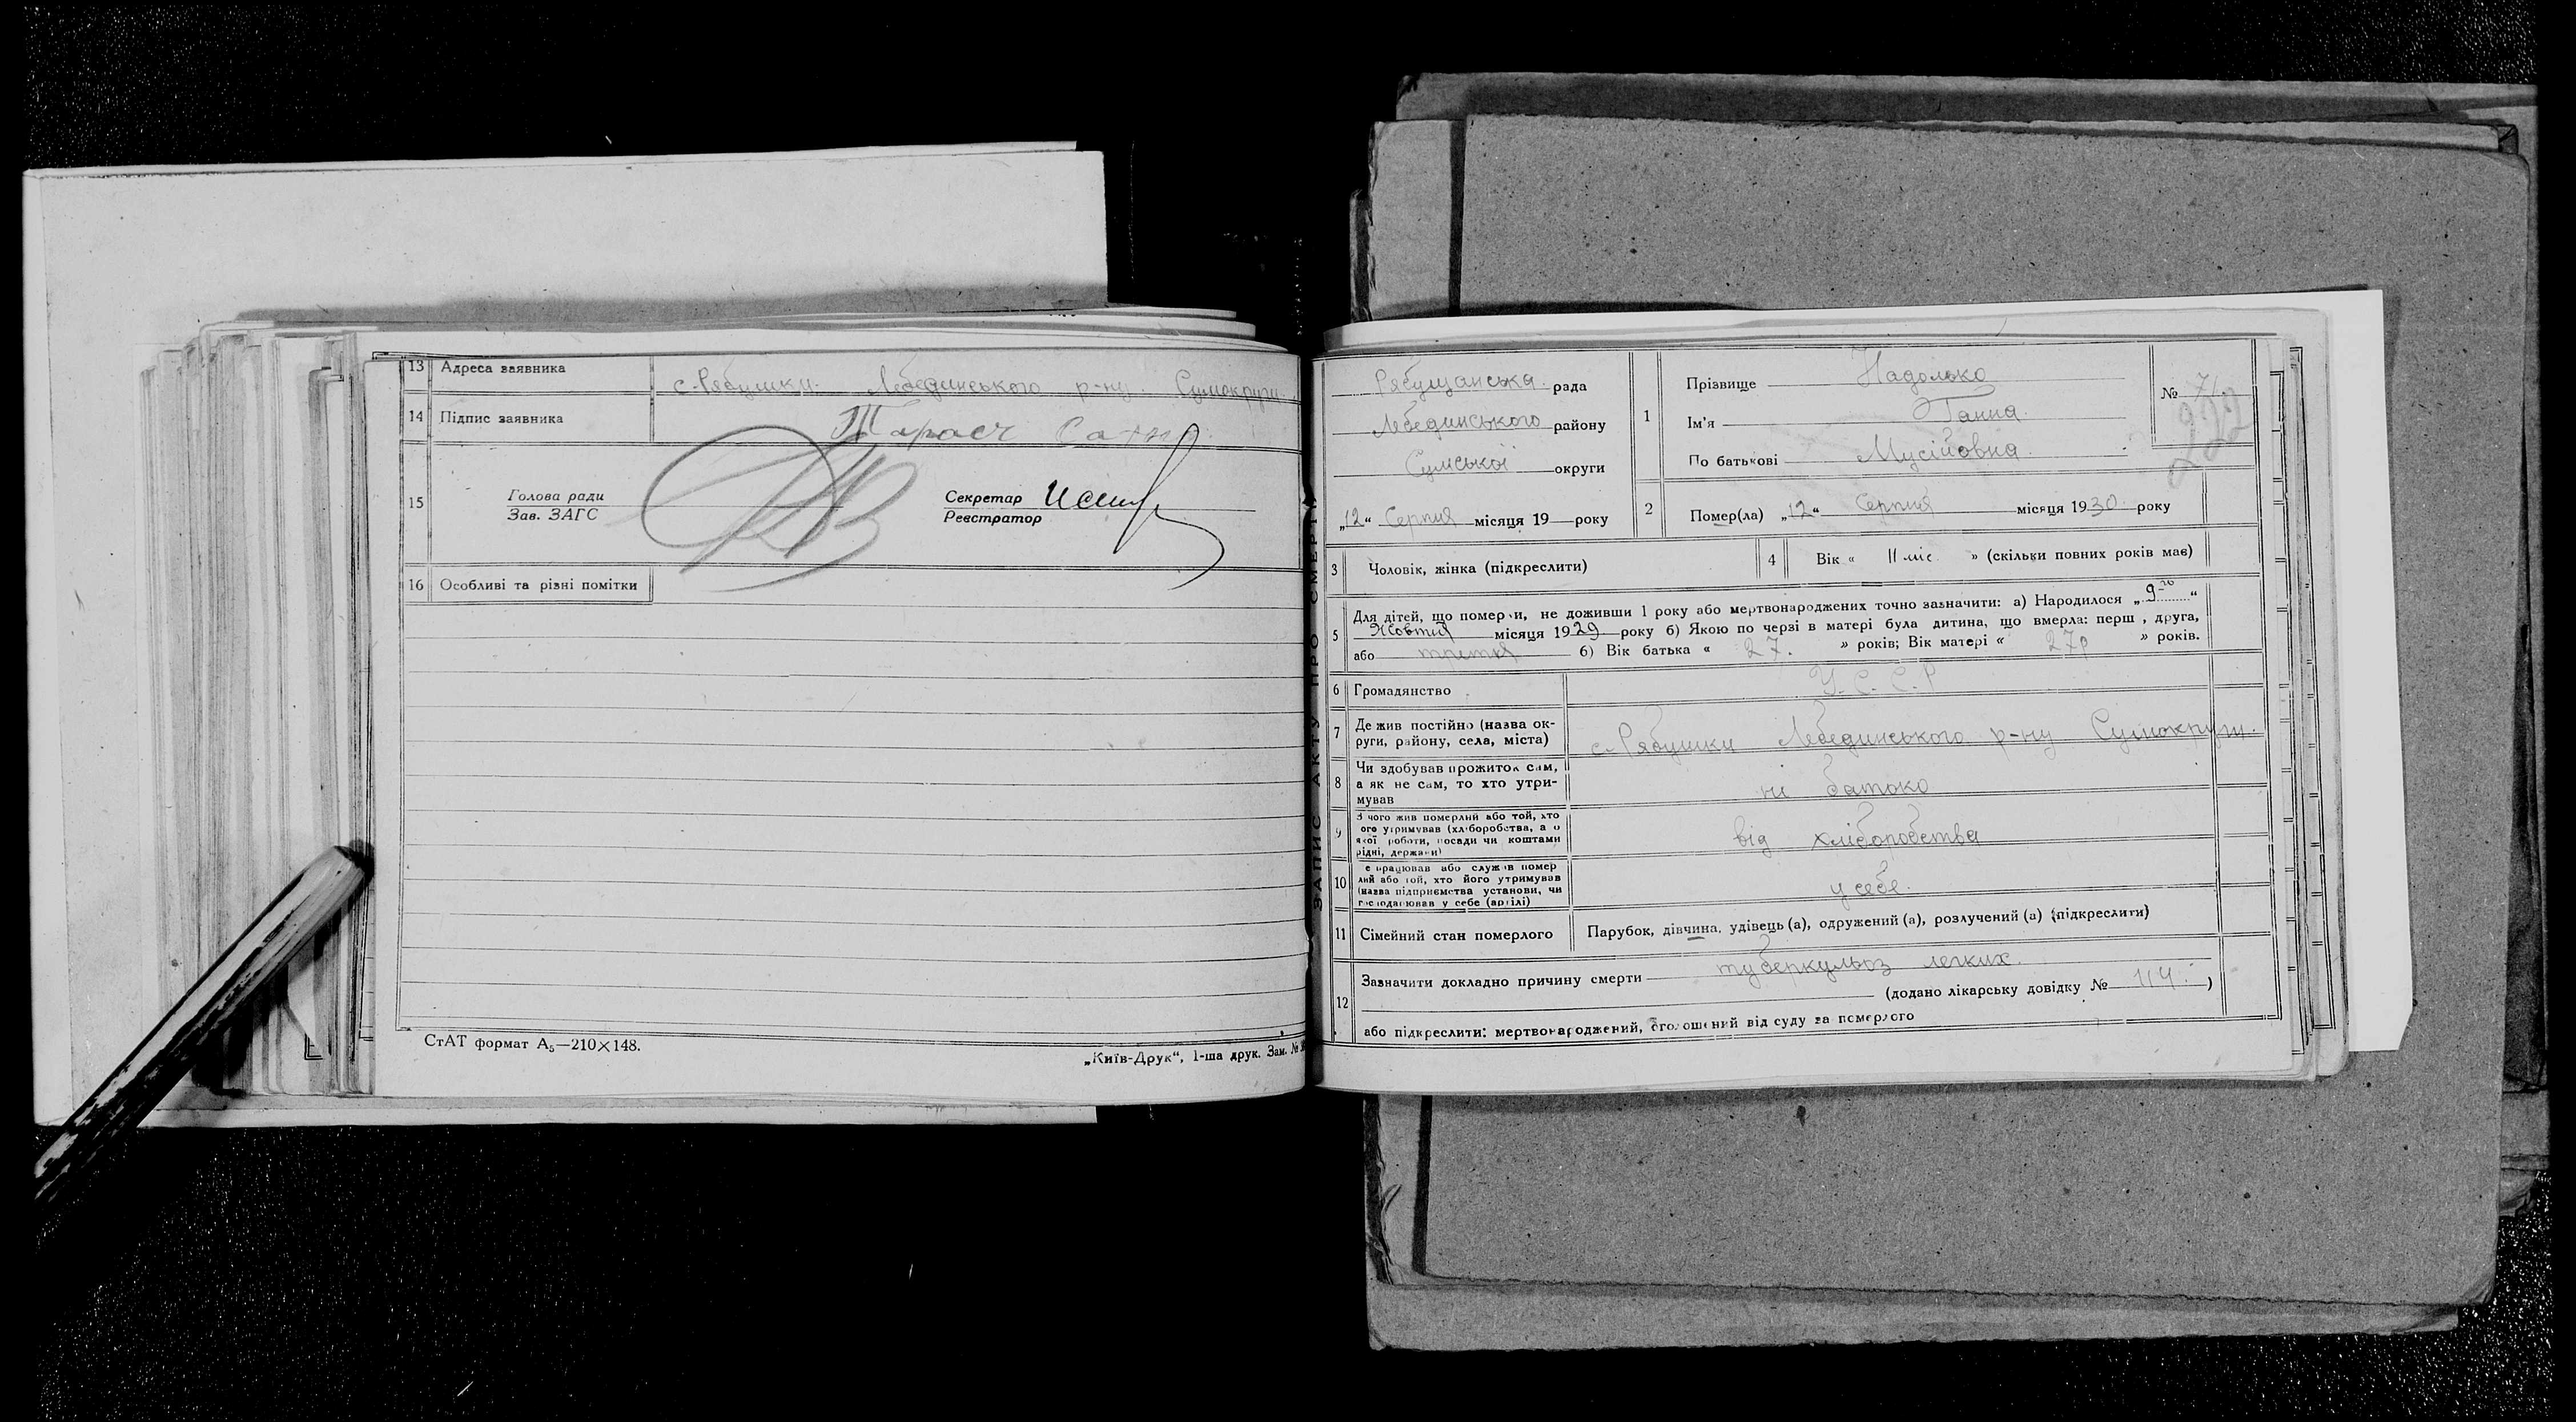 13 Адреса заявника с. Рябушки Лебединського р-ну Сумокруги
14 Підпис заявника Тарасч
15 Голова ради
Зав. ЗАГС
Секретар
Реєстратор
16 Особливі та різні помітки
СтАТ формат А5—210×148.
„Київ-Друк“, 1-ша друк. Зам. №
ЗАПИС АКТУ ПРО СМЕРТЬ
Рябущанська рада
Лебединського району
Сумської округи
„12“ Серпня місяця 19 року
1 Прізвище Надолько
Ім'я Ганна
По батькові Мусійовна
№ 71
222
2 Помер(ла) „12“ Серпня місяця 1930 року
3 Чоловік, жінка (підкреслити)
4 Вік « 11 міс » (скільки повних років мав)
5 Для дітей, що померли, не доживши 1 року або мертвонароджених точно зазначити: а) Народилося „9-го“
Жовтня місяця 1929 року б) Якою по черзі в матері була дитина, що вмерла: перш, друга,
або третя б) Вік батька « 27. » років; Вік матері « 27р » років.
6 Громадянство У.С.С.Р
7 Де жив постійно (назва округи, району, села, міста) с. Рябушки Лебединського р-ну Сумокруги.
8 Чи здобував прожиток сам,
а як не сам, то хто утримував
ні батько
9 З чого жив померлий або той, хто
ого утримував (хліборобства, а о
якої роботи, посади чи коштами
рідні, держави)
від хліборобства
10 е працював або служив помер
лий або той, хто його утримував
(назва підприємства установи, чи
господарював у себе (артілі)
у себе.
11 Сімейний стан померлого Парубок, дівчина, удівець (а), одружений (а), розлучений (а) (підкреслити)
12 Зазначити докладно причину смерти туберкульоз легких.
(додано лікарську довідку № 114.)
або підкреслити: мертвонароджений, оголошений від суду за померлого